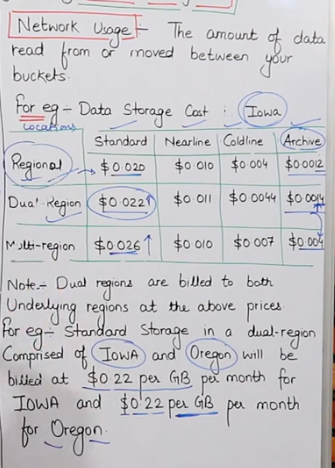 Network Usage :- The amount of data
read from or moved between your
buckets.
For eg :- Data Storage Cost : Iowa
locations
Standard Nearline Coldline Archive
Regional $0.020 $0.010 $0.004 $0.0012
Dual-Region $0.022 $0.011 $0.0044 $0.0014
Multi-region $0.026 $0.010 $0.007 $0.004
Note:- Dual regions are billed to both
Underlying regions at the above prices.
For eg:- Standard Storage in a dual-region
Comprised of IOWA and Oregon will be
billed at $0.22 per GB per month for
IOWA and $0.22 per GB per month
for Oregon.